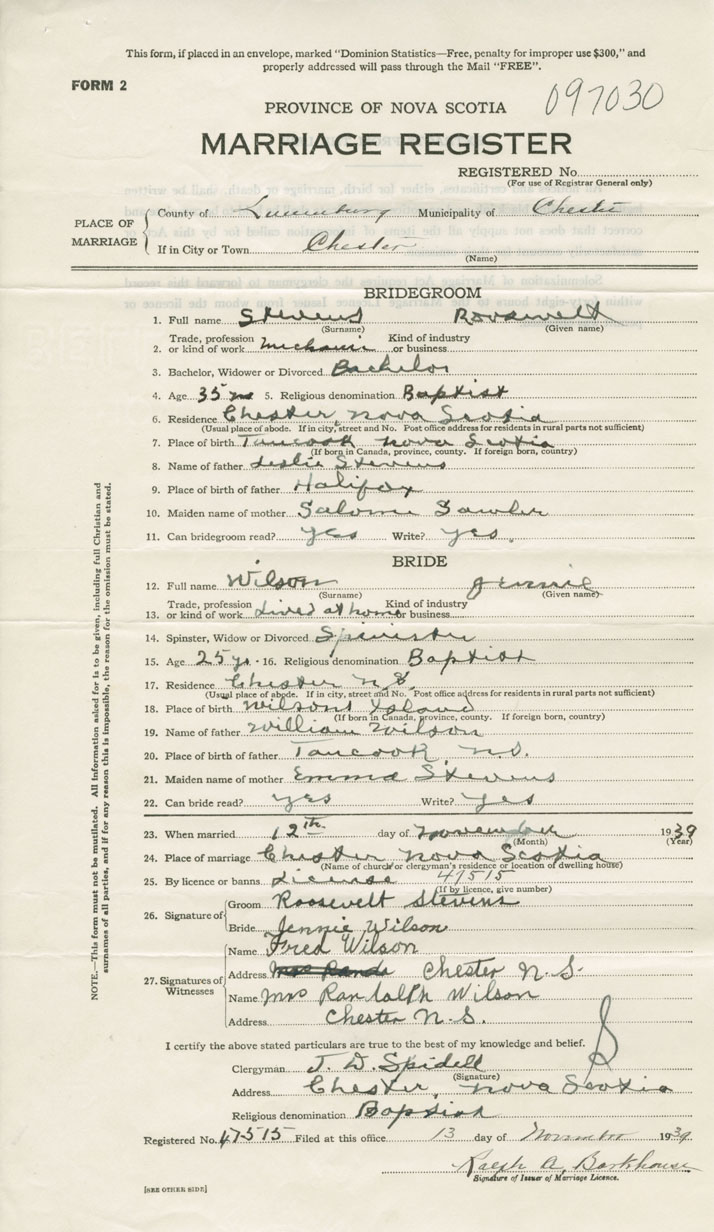 This form, if placed in an envelope, marked "Dominion Statistics—Free, penalty for improper use $300," and
properly addressed will pass through the Mail "FREE".
FORM 2
097030
PROVINCE OF NOVA SCOTIA
MARRIAGE REGISTER
REGISTERED No.
(For use of Registrar General only)
PLACE OF MARRIAGE
County of Lunenburg Municipality of Chester
If in City or Town Chester
(Name)
BRIDEGROOM
1. Full name Stevens Roosevelt
(Surname) (Given name)
2. Trade, profession or kind of work mechanic Kind of industry or business
3. Bachelor, Widower or Divorced Bachelor
4. Age 35 5. Religious denomination Baptist
6. Residence Chester, Nova Scotia
(Usual place of abode. If in city, street and No. Post office address for residents in rural parts not sufficient)
7. Place of birth Tancook Nova Scotia
(If born in Canada, province, county. If foreign born, country)
8. Name of father Leslie Stevens
9. Place of birth of father Halifax
10. Maiden name of mother Salome
11. Can bridegroom read? yes Write? yes.
BRIDE
12. Full name Wilson Jennie
(Surname) (Given name)
13. Trade, profession or kind of work Lived at home Kind of industry or business
14. Spinster, Widow or Divorced Spinister
15. Age 25 yr. 16. Religious denomination Baptist
17. Residence Chester N.S.
(Usual place of abode. If in city, street and No. Post office address for residents in rural parts not sufficient)
18. Place of birth Wilsons Island
(If born in Canada, province, county. If foreign born, country)
19. Name of father William Wilson
20. Place of birth of father Tancook, N.S.
21. Maiden name of mother Emma Stevens
22. Can bride read? yes Write? yes
23. When married 12th day of November 1939
(Month) (Year)
24. Place of marriage Chester Nova Scotia
(Name of church or clergyman's residence or location of dwelling house)
25. By licence or banns License 47515
(If by licence, give number)
26. Signature of
Groom Roosevelt Stevens
Bride Jennie Wilson
27. Signatures of Witnesses
Name Fred Wilson
Address Chester N.S.
Name Mrs Randolph Wilson
Address Chester N.S.
I certify the above stated particulars are true to the best of my knowledge and belief.
Clergyman J. D. Spidell
(Signature)
Address Chester, Nova Scotia
Religious denomination Baptist
Registered No. 47515 Filed at this office 13 day of November 1939
Ralph A. Barkhouse
Signature of Issuer of Marriage Licence.
[SEE OTHER SIDE]
NOTE.—This form must not be mutilated. All information asked for is to be given, including full Christian and
surnames of all parties, and if for any reason this is impossible, the reason for the omission must be stated.